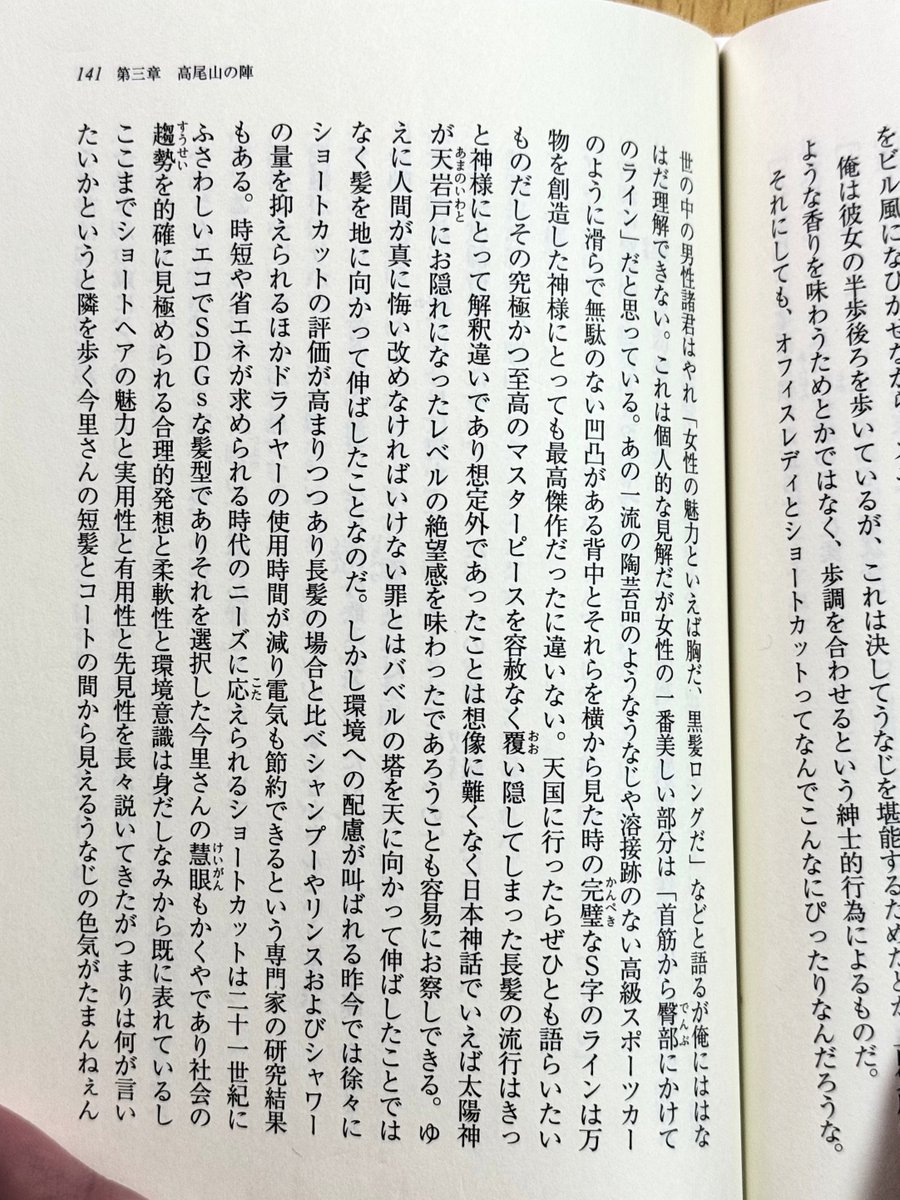 をビル風になびかせながら、
俺は彼女の半歩後ろを歩いているが、これは決してうなじを堪能するためだとか
ような香りを味わうためとかではなく、歩調を合わせるという紳士的行為によるものだ。
それにしても、オフィスレディとショートカットってなんでこんなにぴったりなんだろうな。
141 第三章 高尾山の陣
世の中の男性諸君はやれ「女性の魅力といえば胸だ、黒髪ロングだ」などと語るが俺にははな
はだ理解できない。これは個人的な見解だが女性の一番美しい部分は「首筋から臀部にかけて
のライン」だと思っている。あの一流の陶芸品のようなうなじや溶接跡のない高級スポーツカー
のように滑らで無駄のない凹凸がある背中とそれらを横から見た時の完璧なS字のラインは万
物を創造した神様にとっても最高傑作だったに違いない。天国に行ったらぜひとも語らいたい
ものだしその究極かつ至高のマスターピースを容赦なく覆い隠してしまった長髪の流行はきっ
と神様にとって解釈違いであり想定外であったことは想像に難くなく日本神話でいえば太陽神
が天岩戸にお隠れになったレベルの絶望感を味わったであろうことも容易にお察しできる。ゆ
えに人間が真に悔い改めなければいけない罪とはバベルの塔を天に向かって伸ばしたことでは
なく髪を地に向かって伸ばしたことなのだ。しかし環境への配慮が叫ばれる昨今では徐々に
ショートカットの評価が高まりつつあり長髪の場合と比べシャンプーやリンスおよびシャワー
の量を抑えられるほかドライヤーの使用時間が減り電気も節約できるという専門家の研究結果
もある。時短や省エネが求められる時代のニーズに応えられるショートカットは二十一世紀に
ふさわしいエコでSDGsな髪型でありそれを選択した今里さんの慧眼もかくやであり社会の
趨勢を的確に見極められる合理的発想と柔軟性と環境意識は身だしなみから既に表れているし
ここまでショートヘアの魅力と実用性と有用性と先見性を長々説いてきたがつまりは何が言い
たいかというと隣を歩く今里さんの短髪とコートの間から見えるうなじの色気がたまんねぇん